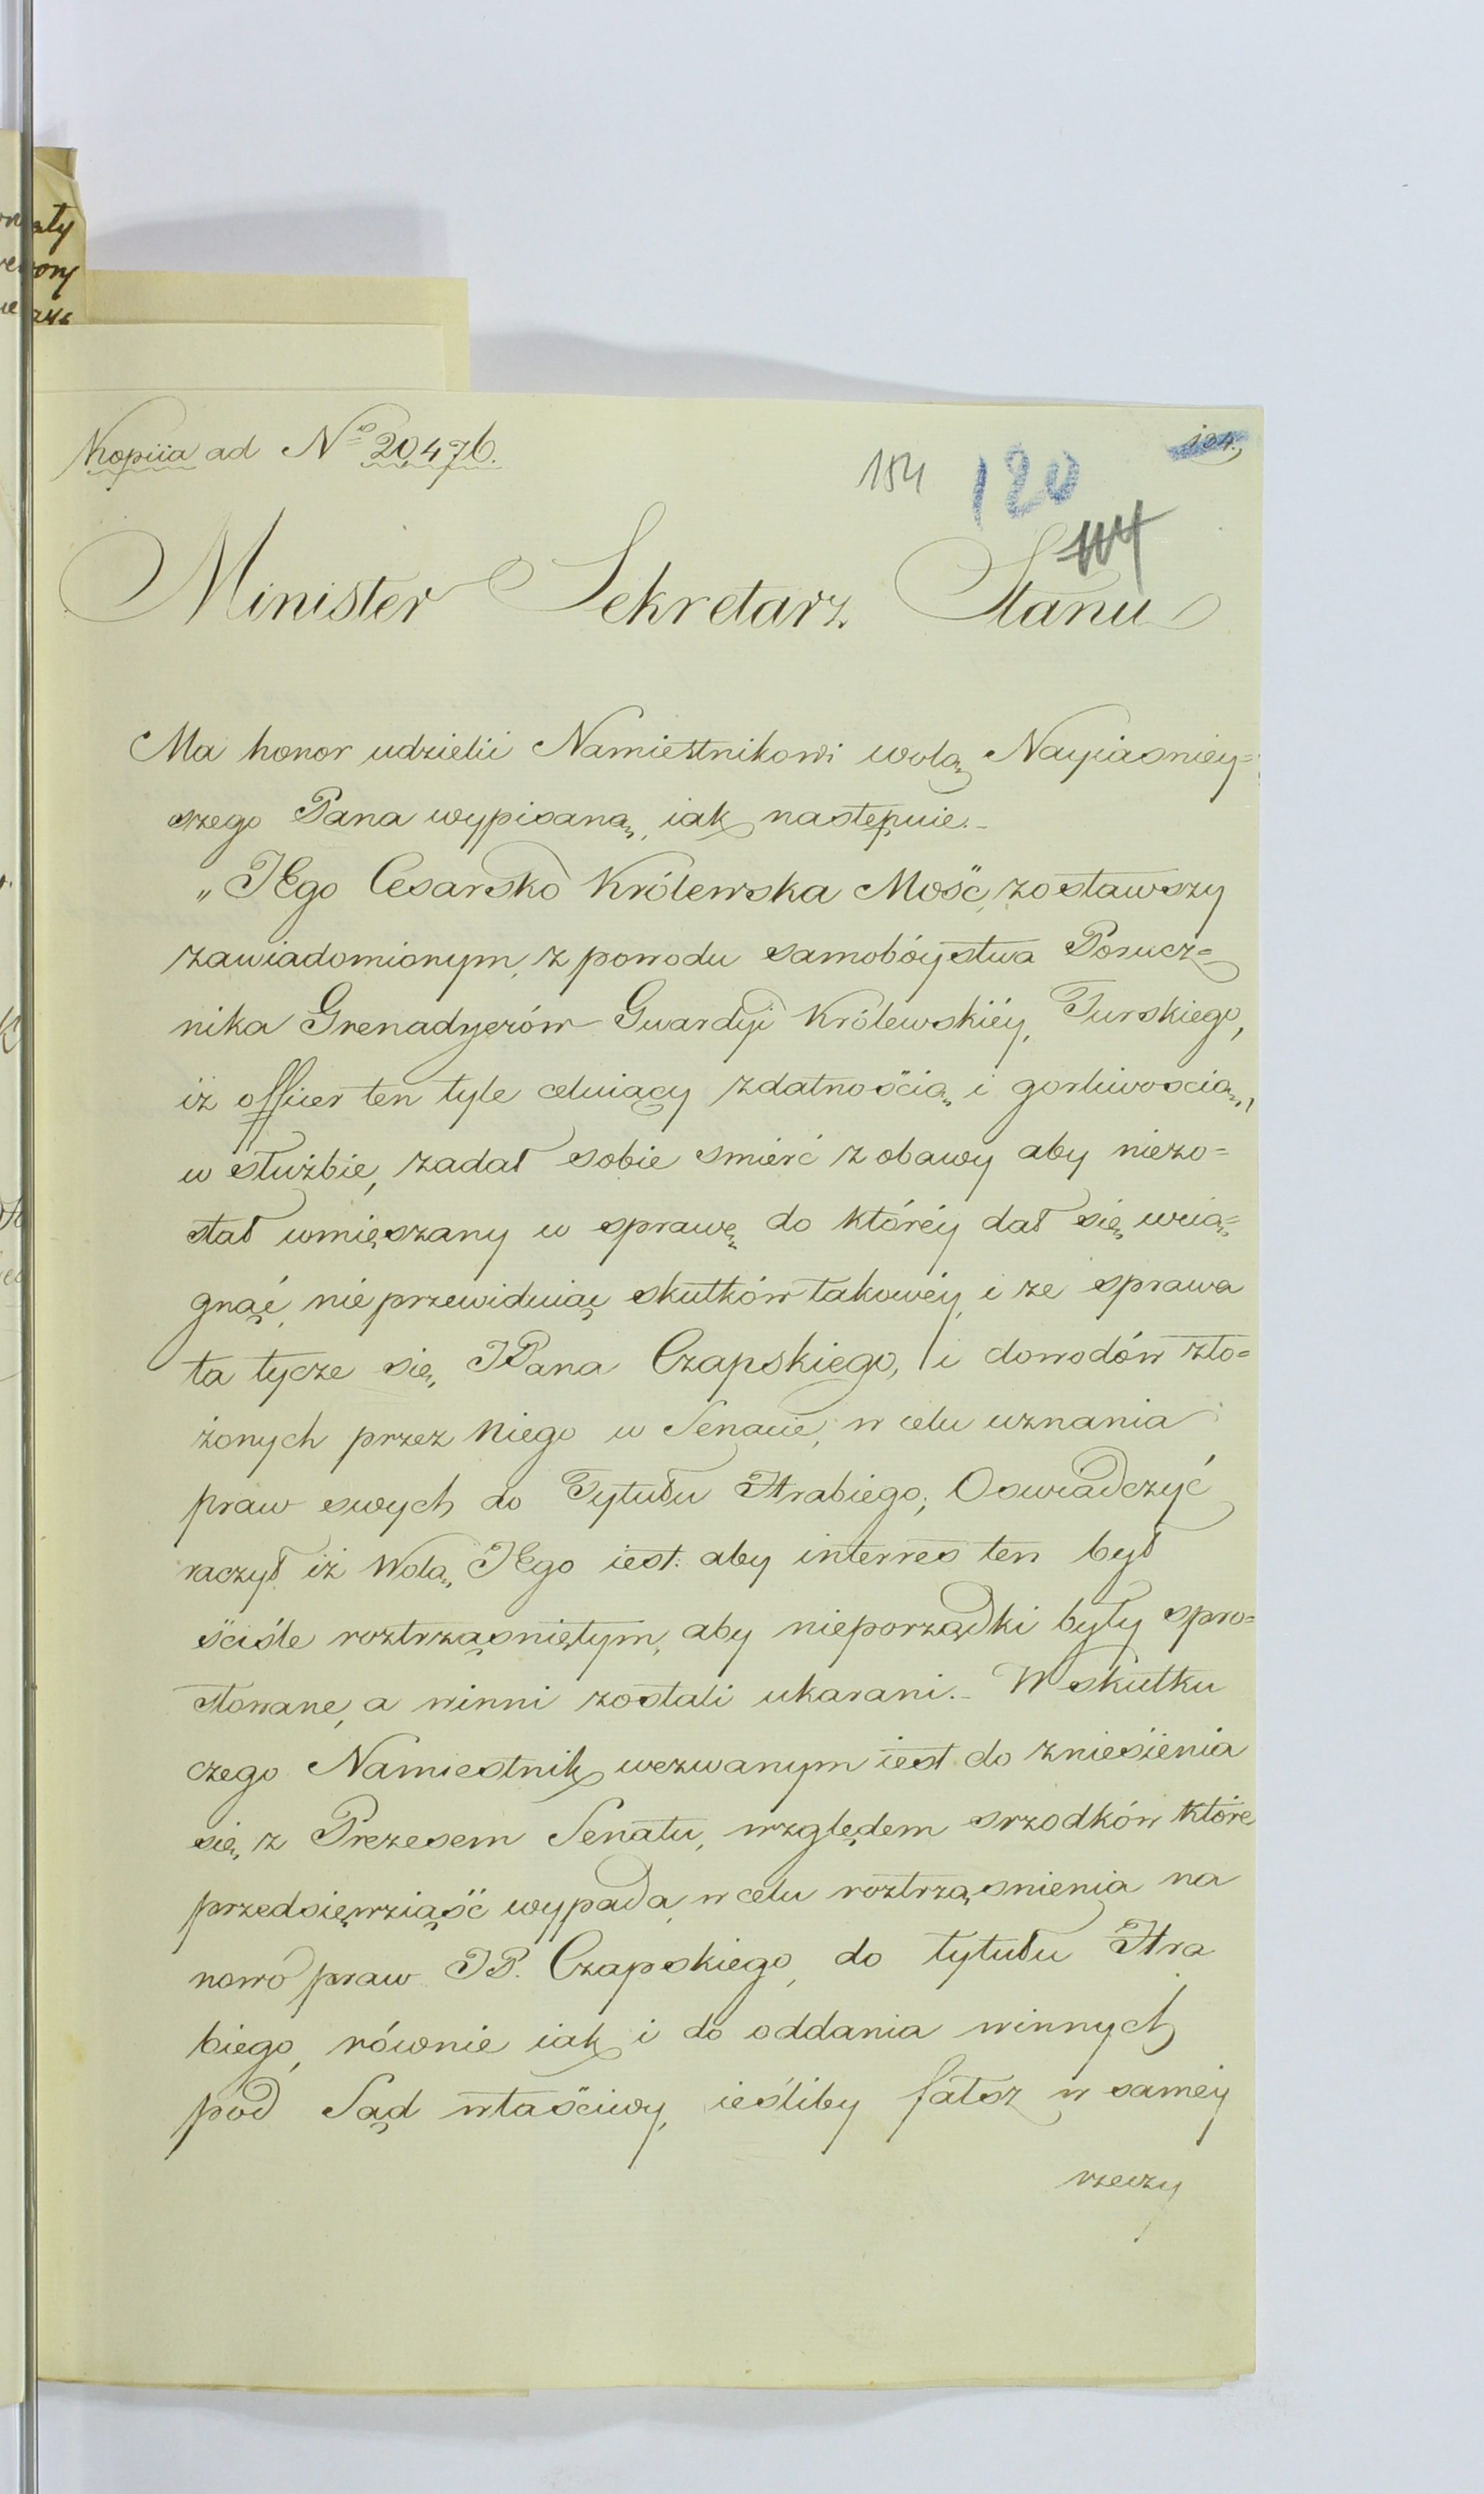 Kopiia ad No 20476.
184 120 104.
114
Minister Sekretarz Stanu
Ma honor udzielić Namiestnikowi wolą Nayiaśniey=
szego Pana wypisaną, iak następuie.-
„JEgo Cesarsko Królewska Mość, zostawszy
zawiadomionym, z powodu samobóystwa Porucz=
nika Grenadyerów Gwardyi Królewskiéy, Turskiego,
iż officer ten tyle celuiący zdatnością i gorliwością,
w służbie, zadał sobie smierć z obawy aby niezo=
stał wmięszany w sprawę do któréy dał się wcią=
gnąć, nie przewiduiąc skutków takowéy, i że sprawa
ta tycze się JPana Czapskiego, i dowodów zło=
żonych przez Niego w Senacie, w celu uznania
praw swych do Tytułu Hrabiego; Oswiadczyć
raczył iż Wolą JEgo iest: aby interres ten był
ściśle roztrząśniętym, aby nieporządki były spro=
stowane, a winni zostali ukarani.- W skutku
czego Namiestnik wezwanym iest do zniesienia
się z Prezesem Senatu, względem srzodków które
przedsięwziąść wypada, w celu roztrząsnienia na
nowo praw JP. Czapskiego, do tytułu Hra
biego, równie iak i do oddania winnych
pod Sąd właściwy, ieśliby fałsz w saméy
rzeczy